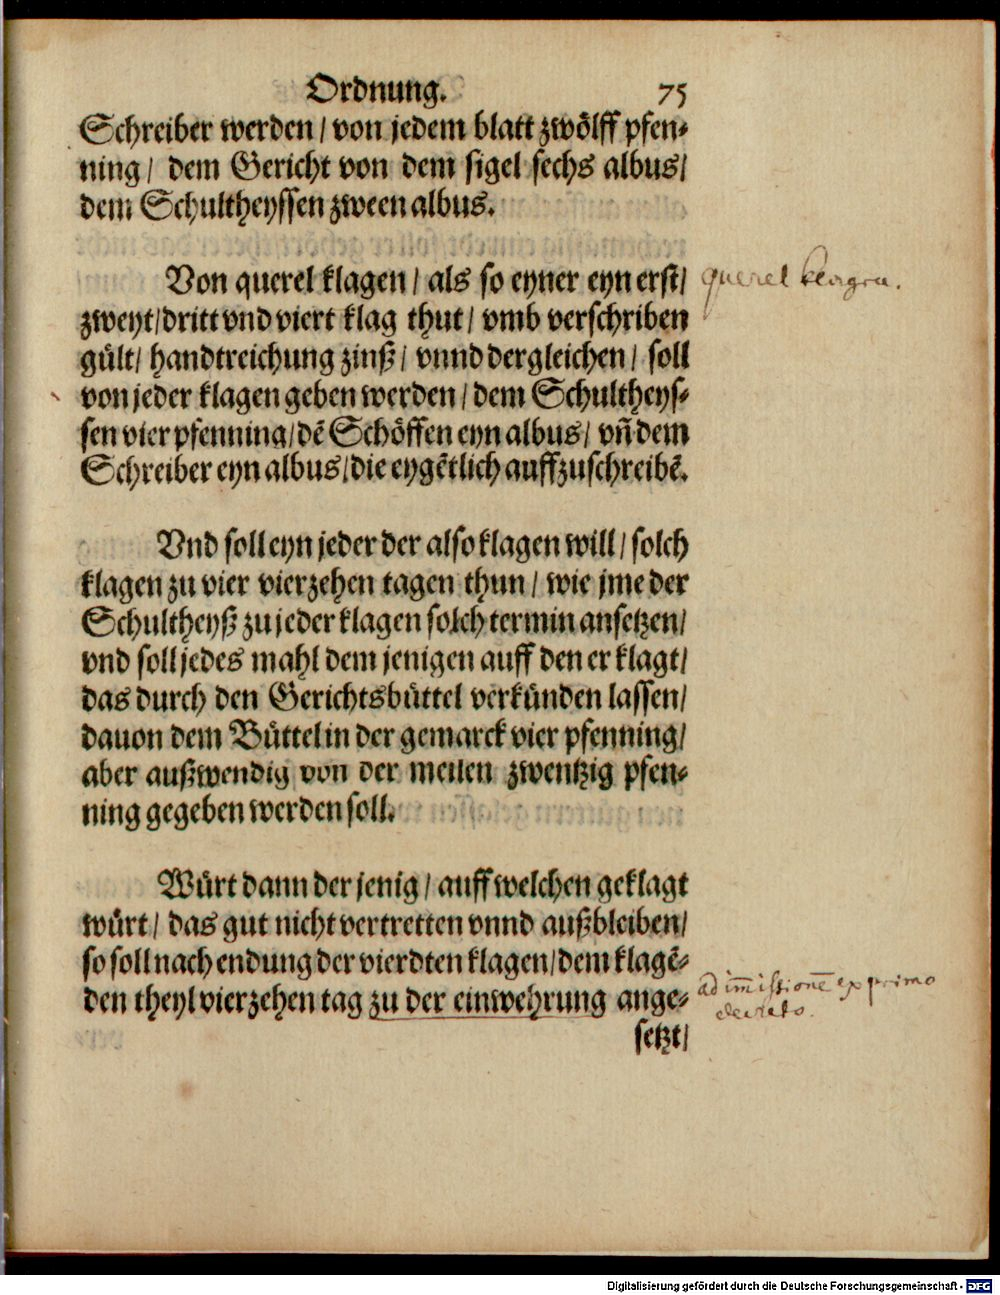 Ordnung. 75
Schreiber werden / von jedem blatt zwölff pfen-
ning / dem Gericht von dem sigel sechs albus /
dem Schultheyssen zween albus.
Von querel klagen / als so eyner eyn erst /
querel klagen.
zweyt / dritt vnd viert klag thut / vmb verschriben
gült / handtreichung zinß / vnnd dergleichen / soll
von jeder klagen geben werden / dem Schultheys-
sen vier pfenning / dē Schöffen eyn albus / vñ dem
Schreiber eyn albus / die eygētlich auffzuschreibē.
Vnd soll eyn jeder der also klagen will / solch
klagen zu vier vierzehen tagen thun / wie jme der
Schultheyß zu jeder klagen solch termin ansetzen /
vnd soll jedes mahl dem jenigen auff den er klagt /
das durch den Gerichtsbüttel verkünden lassen /
dauon dem Büttel in der gemarck vier pfenning /
aber außwendig von der meilen zwentzig pfen-
ning gegeben werden soll.
Würt dann der jenig / auff welchen geklagt
würt / das gut nicht vertretten vnnd außbleiben /
so soll nach endung der vierdten klagen / dem klagē-
den theyl vierzehen tag zu der einwehrung ange-
ad im̄issionē ex primo
decreto.
setzt /
Digitalisierung gefördert durch die Deutsche Forschungsgemeinschaft - DFG